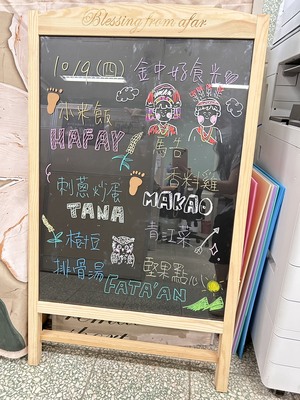 Blessing from afar
10/9(四) 金中奶食光
小米飯
HAFAY
馬告
香料雞
MAKAO
刺蔥炒蛋
TANA
樹豆
排骨湯
FATA'AN
青江菜
堅果點心